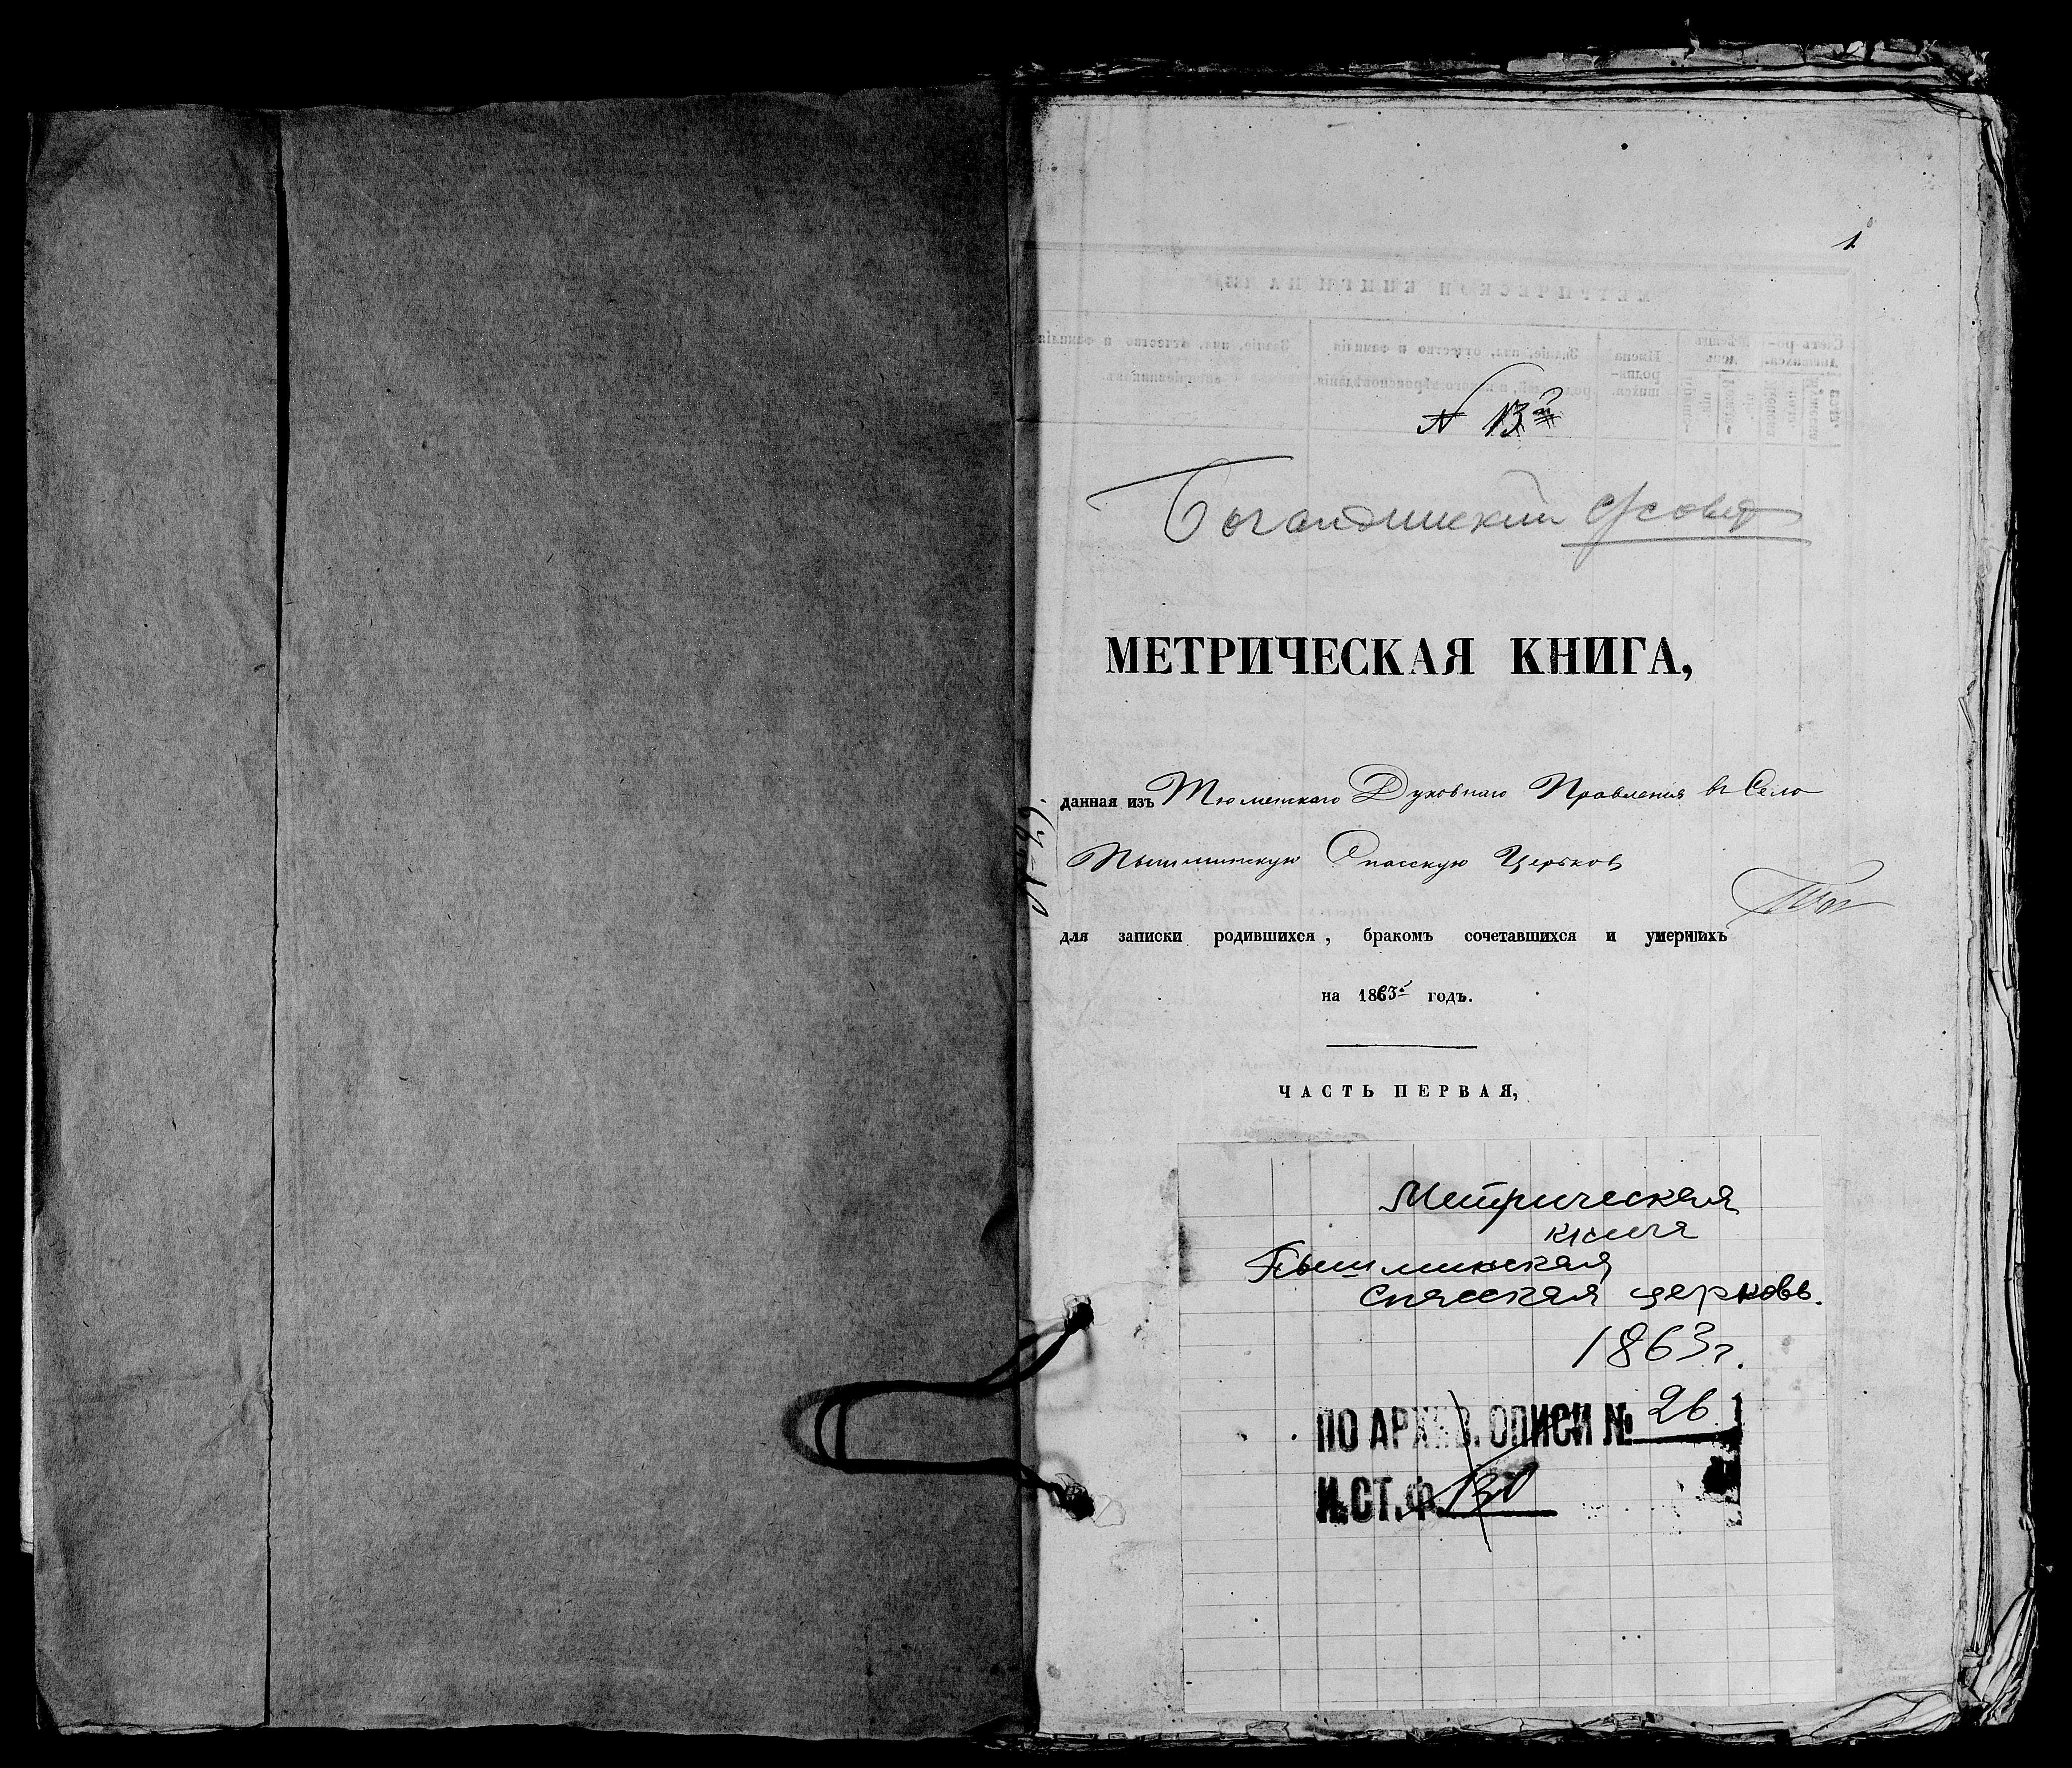 1.
N 13й
Богандинский с/совет
МЕТРИЧЕСКАЯ КНИГА,
данная изъ Тюменскаго Духовнаго Правления въ Село
Пышминскую Спасскую Церковь
для записки родившихся, бракомъ сочетавшихся и умершихъ
на 1863й годъ.
ЧАСТЬ ПЕРВАЯ,
Метрическая
книга
Пышминская
Спасская церковь.
1863г.
ПО АРХИВ. ОПИСИ № 26
И.СТ.Ф. 130